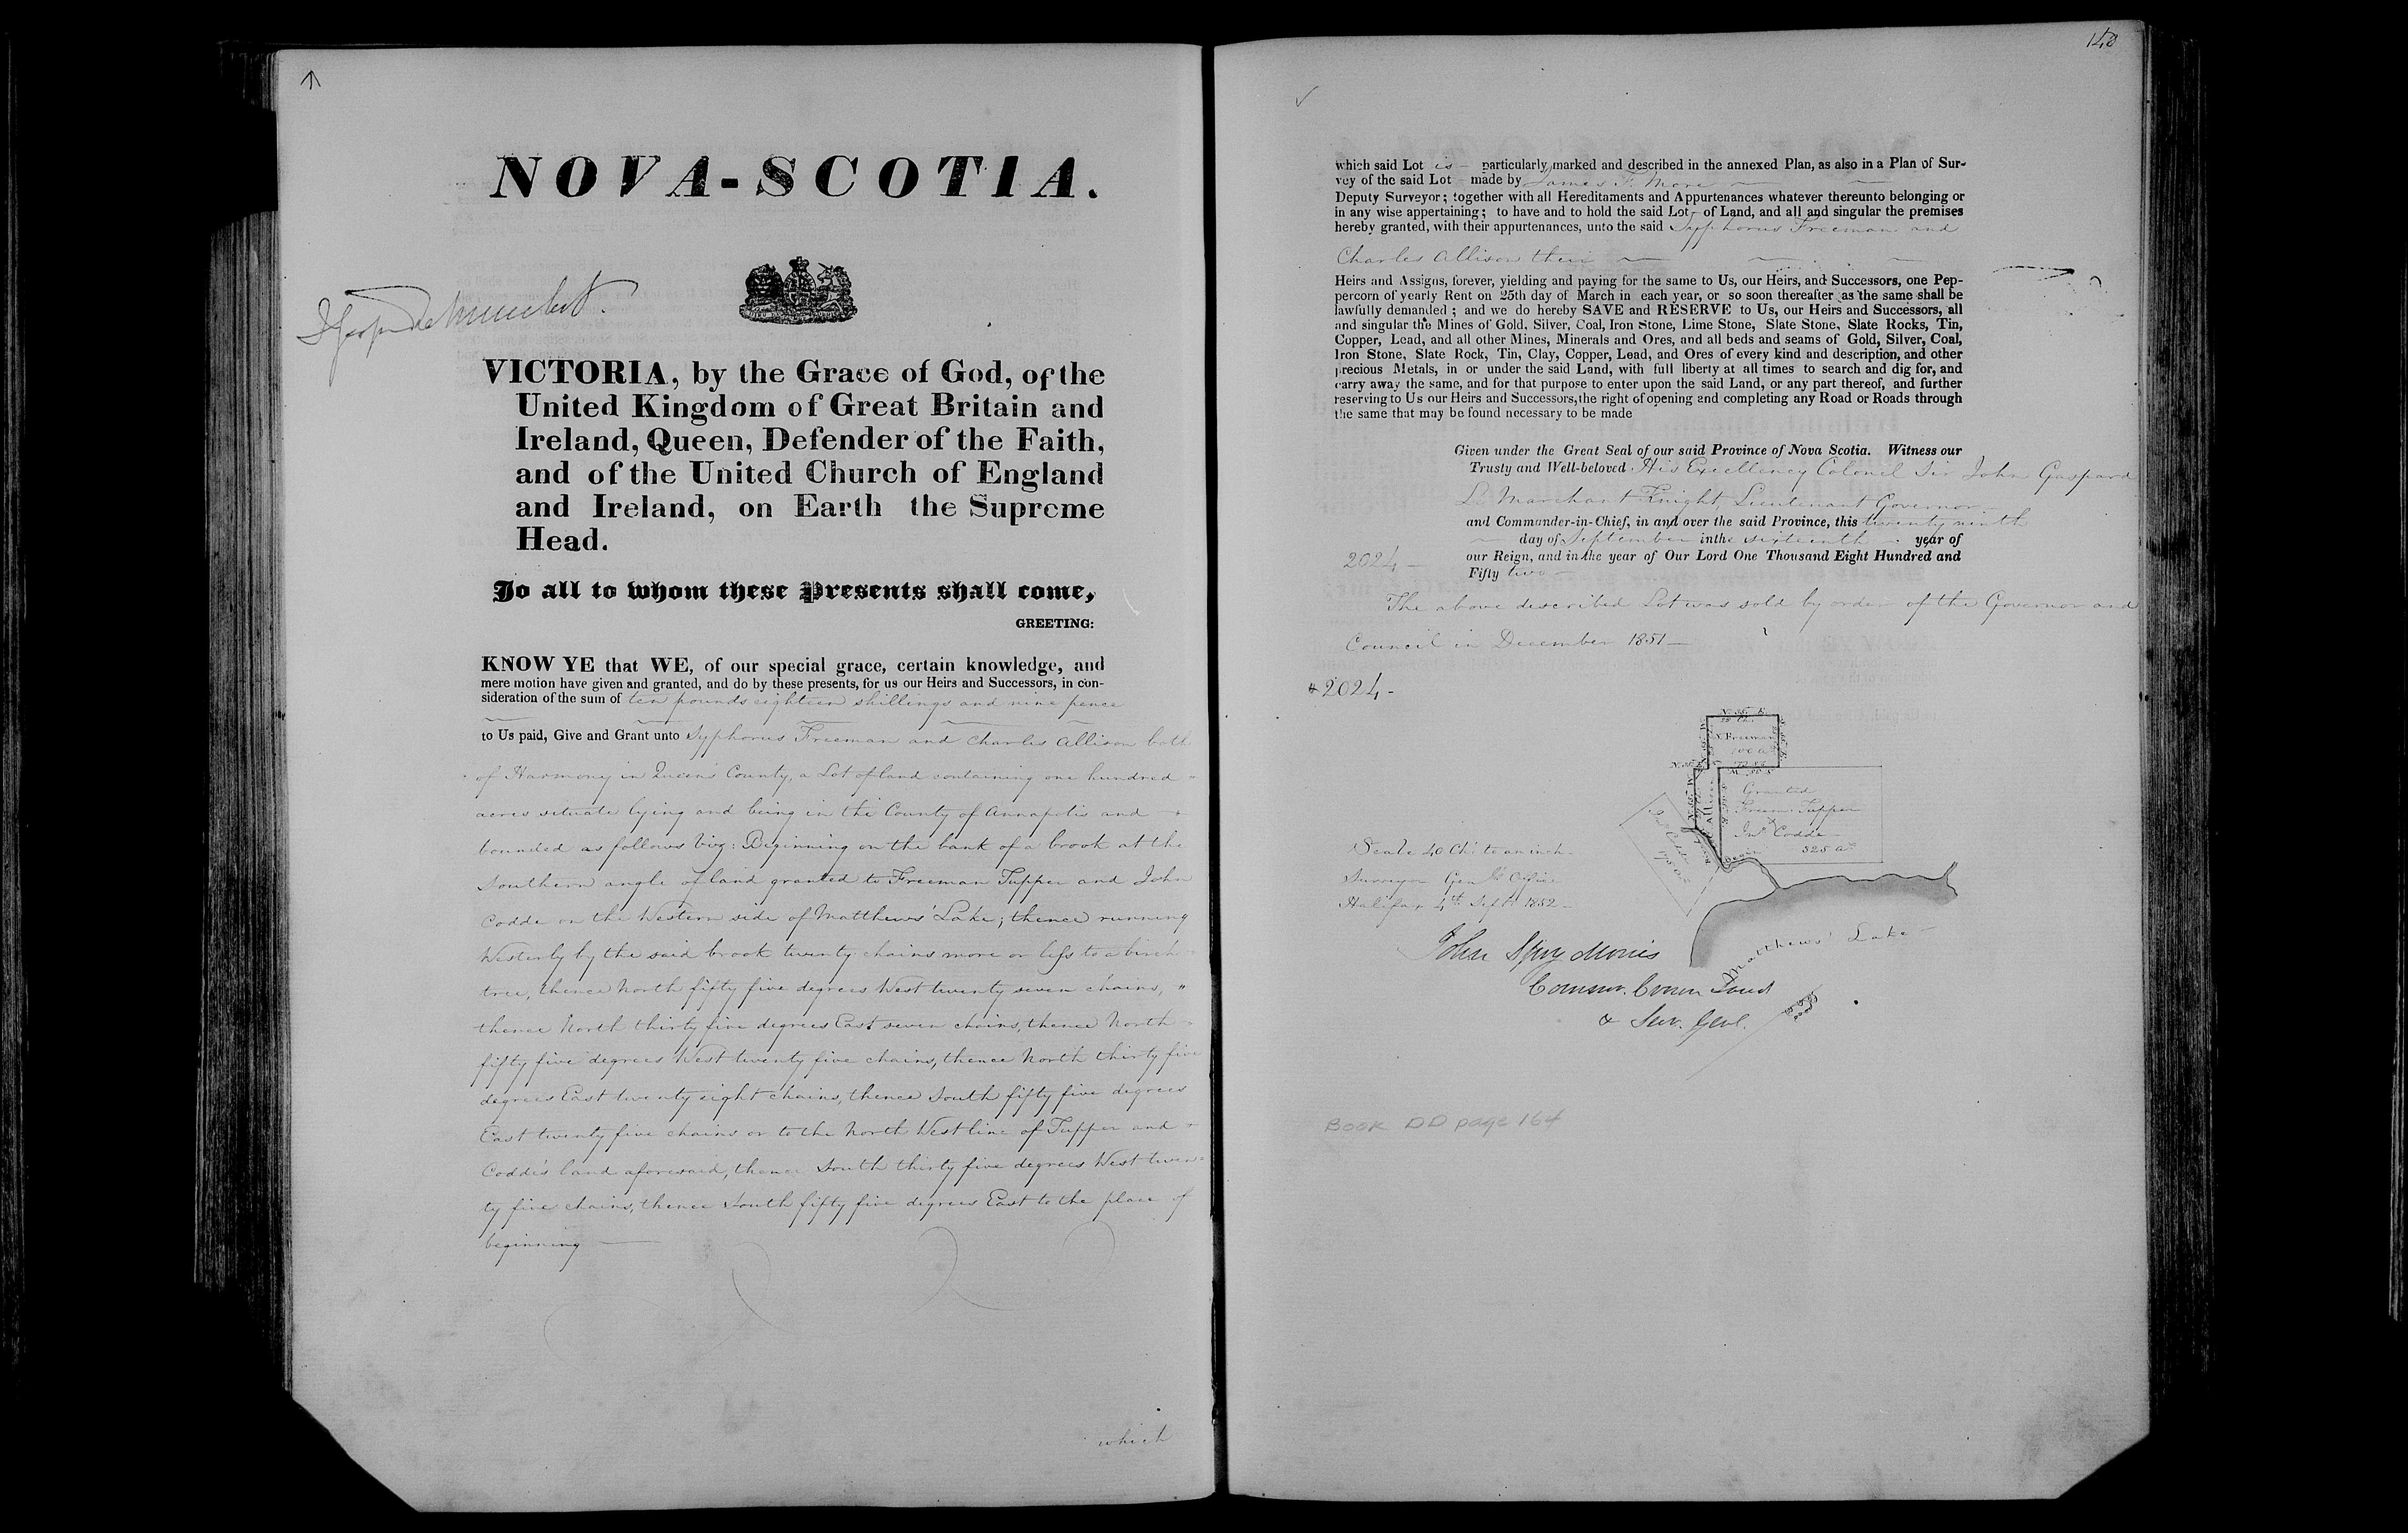 NOVA-SCOTIA.
VICTORIA, by the Grace of God, of the
United Kingdom of Great Britain and
Ireland, Queen, Defender of the Faith,
and of the United Church of England
and Ireland, on Earth the Supreme
Head.
To all to whom these Presents shall come,
GREETING:
KNOW YE that WE, of our special grace, certain knowledge, and
mere motion have given and granted, and do by these presents, for us our Heirs and Successors, in con-
sideration of the sum of ten pounds eighteen shillings and nine pence
to Us paid, Give and Grant unto Syphorus Freeman and Charles Allison both
of Harmony in Queen's County, a Lot of land containing one hundred
acres situate lying and being in the County of Annapolis and
bounded as follows Viz: Beginning on the bank of a brook at the
Southern angle of land granted to Freeman Tupper and John
Codde on the Western side of Matthews' Lake; thence running
Westerly by the said brook twenty chains more or less to a birch
tree, thence North fifty five degrees West twenty seven chains, "
thence North thirty five degrees East seven chains, thence North
fifty five degrees West twenty five chains, thence North thirty five
degrees East twenty eight chains, thence South fifty five degrees
East twenty five chains or to the North West line of Tupper and
Codde's land aforesaid, thence South thirty five degrees West twen
ty five chains, thence South fifty five degrees East to the place of
beginning
which
148
which said Lot is particularly marked and described in the annexed Plan, as also in a Plan of Sur-
vey of the said Lot made by James F. More
Deputy Surveyor; together with all Hereditaments and Appurtenances whatever thereunto belonging or
in any wise appertaining; to have and to hold the said Lot of Land, and all and singular the premises
hereby granted, with their appurtenances, unto the said Syphorus Freeman and
Charles Allison their
Heirs and Assigns, forever, yielding and paying for the same to Us, our Heirs, and Successors, one Pep-
percorn of yearly Rent on 25th day of March in each year, or so soon thereafter as the same shall be
lawfully demanded; and we do hereby SAVE and RESERVE to Us, our Heirs and Successors, all
and singular the Mines of Gold, Silver, Coal, Iron Stone, Lime Stone, Slate Stone, Slate Rocks, Tin,
Copper, Lead, and all other Mines, Minerals and Ores, and all beds and seams of Gold, Silver, Coal,
Iron Stone, Slate Rock, Tin, Clay, Copper, Lead, and Ores of every kind and description, and other
precious Metals, in or under the said Land, with full liberty at all times to search and dig for, and
carry away the same, and for that purpose to enter upon the said Land, or any part thereof, and further
reserving to Us our Heirs and Successors, the right of opening and completing any Road or Roads through
the same that may be found necessary to be made
Given under the Great Seal of our said Province of Nova Scotia. Witness our
Trusty and Well-beloved His Excellency Colonel Sir John Gaspard
Le Marchant Knight, Lieutenant Governor
and Commander-in-Chief, in and over the said Province, this twenty ninth
day of September in the sixteenth year of
2024 our Reign, and in the year of Our Lord One Thousand Eight Hundred and
Fifty two
The above described Lot was sold by order of the Governor and
Council in December 1851
2024
S. Freeman
100 a
Granted
Freem. Tupper
Jno. Codde
325 a
Scale 40 Chs to an inch
Surveyor Genl's Office
Halifax 4th Sept 1852
Matthews' Lake
John Spry Morris
Commr. Crown Lands
& Sur. Genl.
BOOK DD page 164